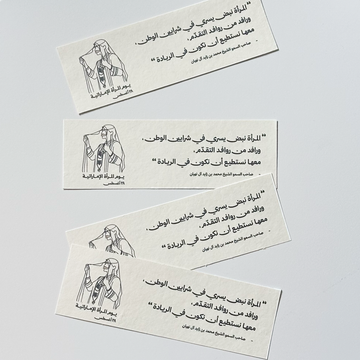 ” المرأة نبض يسري في شرايين الوطن،
ورافد من روافد التقدّم،
معها نستطيع أن نكون في الريادة “
صاحب السمو الشيخ محمد بن زايد آل نهيان
يوم المرأة الإماراتية
٢٨ أغسطس
” المرأة نبض يسري في شرايين الوطن،
ورافد من روافد التقدّم،
معها نستطيع أن نكون في الريادة “
صاحب السمو الشيخ محمد بن زايد آل نهيان
يوم المرأة الإماراتية
٢٨ أغسطس
” المرأة نبض يسري في شرايين الوطن،
ورافد من روافد التقدّم،
معها نستطيع أن نكون في الريادة “
صاحب السمو الشيخ محمد بن زايد آل نهيان
” المرأة نبض يسري في شرايين الوطن،
ورافد من روافد التقدّم،
معها نستطيع أن نكون في الريادة “
صاحب السمو الشيخ محمد بن زايد آل نهيان
يوم المرأة الإماراتية
٢٨ أغسطس